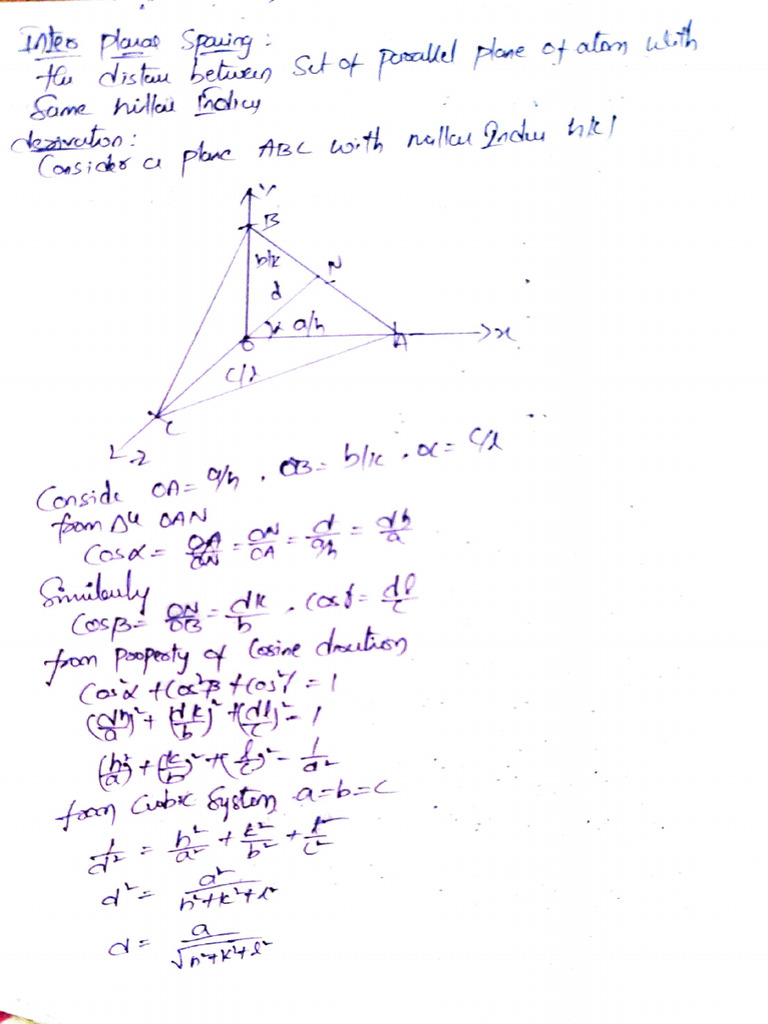 Inter planar Spacing :
the distan between Set of parallel plane of atom with
Same millar Indices
derivation:
Consider a plane ABC with millar Indices hkl
Y
B
b/k
N
d
α a/h
O
A
x
c/l
C
z
Conside OA = a/h . OB = b/k . = c/l
from Δle OAN
Cosα = = ON/OA = d/a/h = dh/a
Similarly
Cosβ = ON/OB = dk/b . Cosγ = dl/c
from property of Cosine direction
Cos²α + Cos²β + Cos²γ = 1
(dh/a)² + (dk/b)² + (dl/c)² = 1
(h/a)² + (k/b)² + (l/c)² = 1/d²
from Cubic System a=b=c
1/d² = h²/a² + k²/b² + l²/c²
d² = a²/h²+k²+l²
d = a/√h²+k²+l²